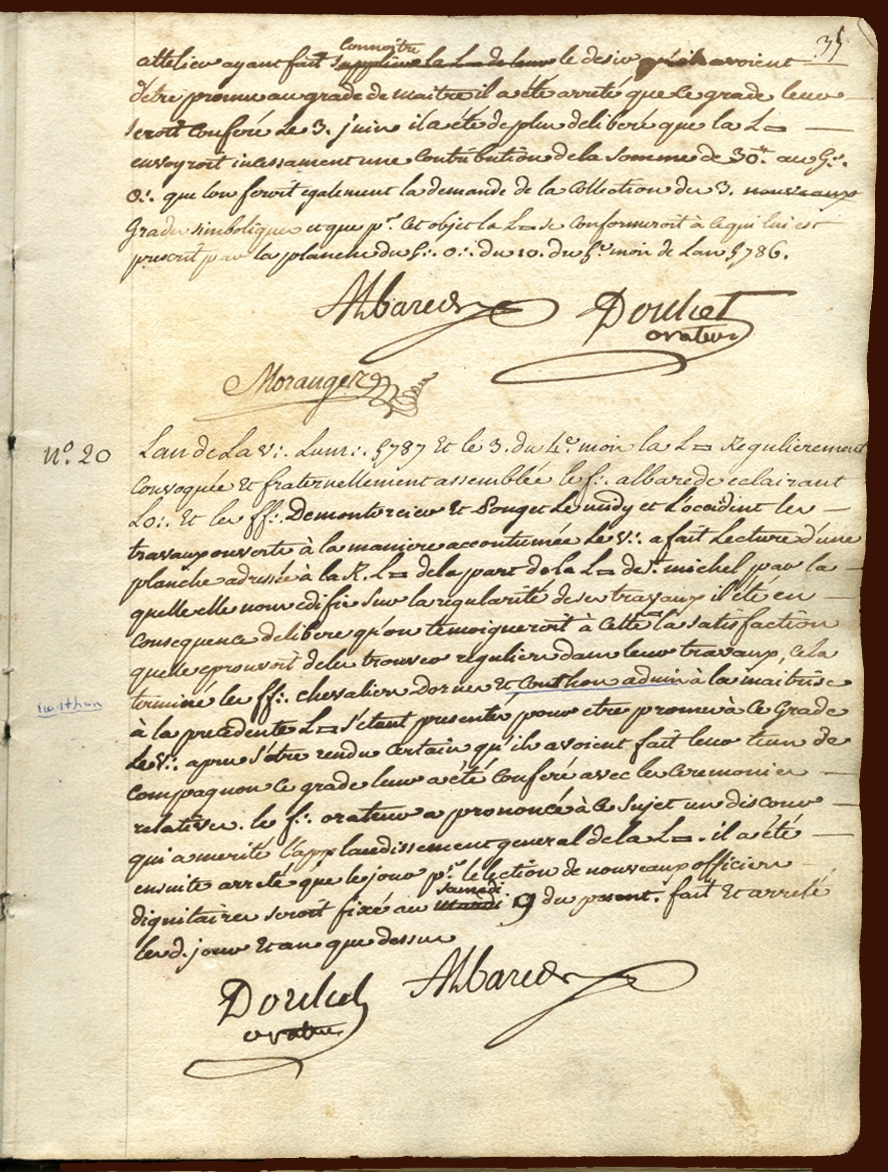 35
attelier ayant fait connoitre le desir qu'ils avoient
d'être promu au grade de maitre il a été arrêté que ce grade leur
seroit Conferé Le 3. juin il a été de plus deliberé que la L▭
envoyroit incessament une Contribution de la Somme de 30.tt au G∴
O∴ que lon feroit egalement la demande de la Collection des 3. nouveaux
Grades simboliques et que pr. Cet objet la L▭ se Conformeroit à ce qui lui est
prescrit par la planche du G∴ O∴ du 10. du 5e. mois de Lan 5786.
Albarede
Douhet
orateur
Moranges
n.º 20
Lan de La v∴ Lum∴ 5787 Et le 3. du 4e. mois la L▭ Regulierement
Convoquée Et fraternellement assemblée le f∴ albarede eclairant
Lo∴ Et les ff∴ Demontorcier Et Pouget Le midy et L'occident les
travaux ouverts à la maniere accoutumée Le v∴ a fait Lecture d'une
planche adressée à la R. L▭ de la part de la L▭ de St. michel par la
quelle elle nous edifie Sur la regularité de ses travaux il été en
Consequence delibere qu'on temoigneroit à Cette L▭ la satisfaction
quelle eprouvoit de les trouver reguliers dans leurs travaux, cela
terminé les ff∴ chevalier Dornes et Couthon admis à la maitrise
Couthon
à la precedente L▭ S'etant presentés pour etre promu à Ce Grade
Le v∴ apres S'etre rendu Certain qu'ils avoient fait leur tems de
Compagnon Ce grade leur a été Conferé avec les Ceremonies
relatives. le f∴ orateur a prononcé à Ce Sujet un discours
qui a merité l'applaudissement general de la L▭. il a été
ensuite arreté que le jour pr. lelection de nouveaux officiers
dignitaires seroit fixé au mardi samedi 9 du present. fait Et arreté
les d. jour Et an que dessus
Douhet
orateur
Albarede